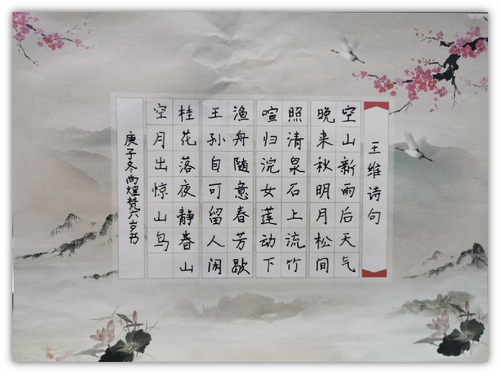 王维诗句
空山新雨后天气
晚来秋明月松间
照清泉石上流竹
喧归浣女莲动下
渔舟随意春芳歇
王孙自可留人闲
桂花落夜静春山
空月出惊山鸟
庚子冬煜梵六岁书